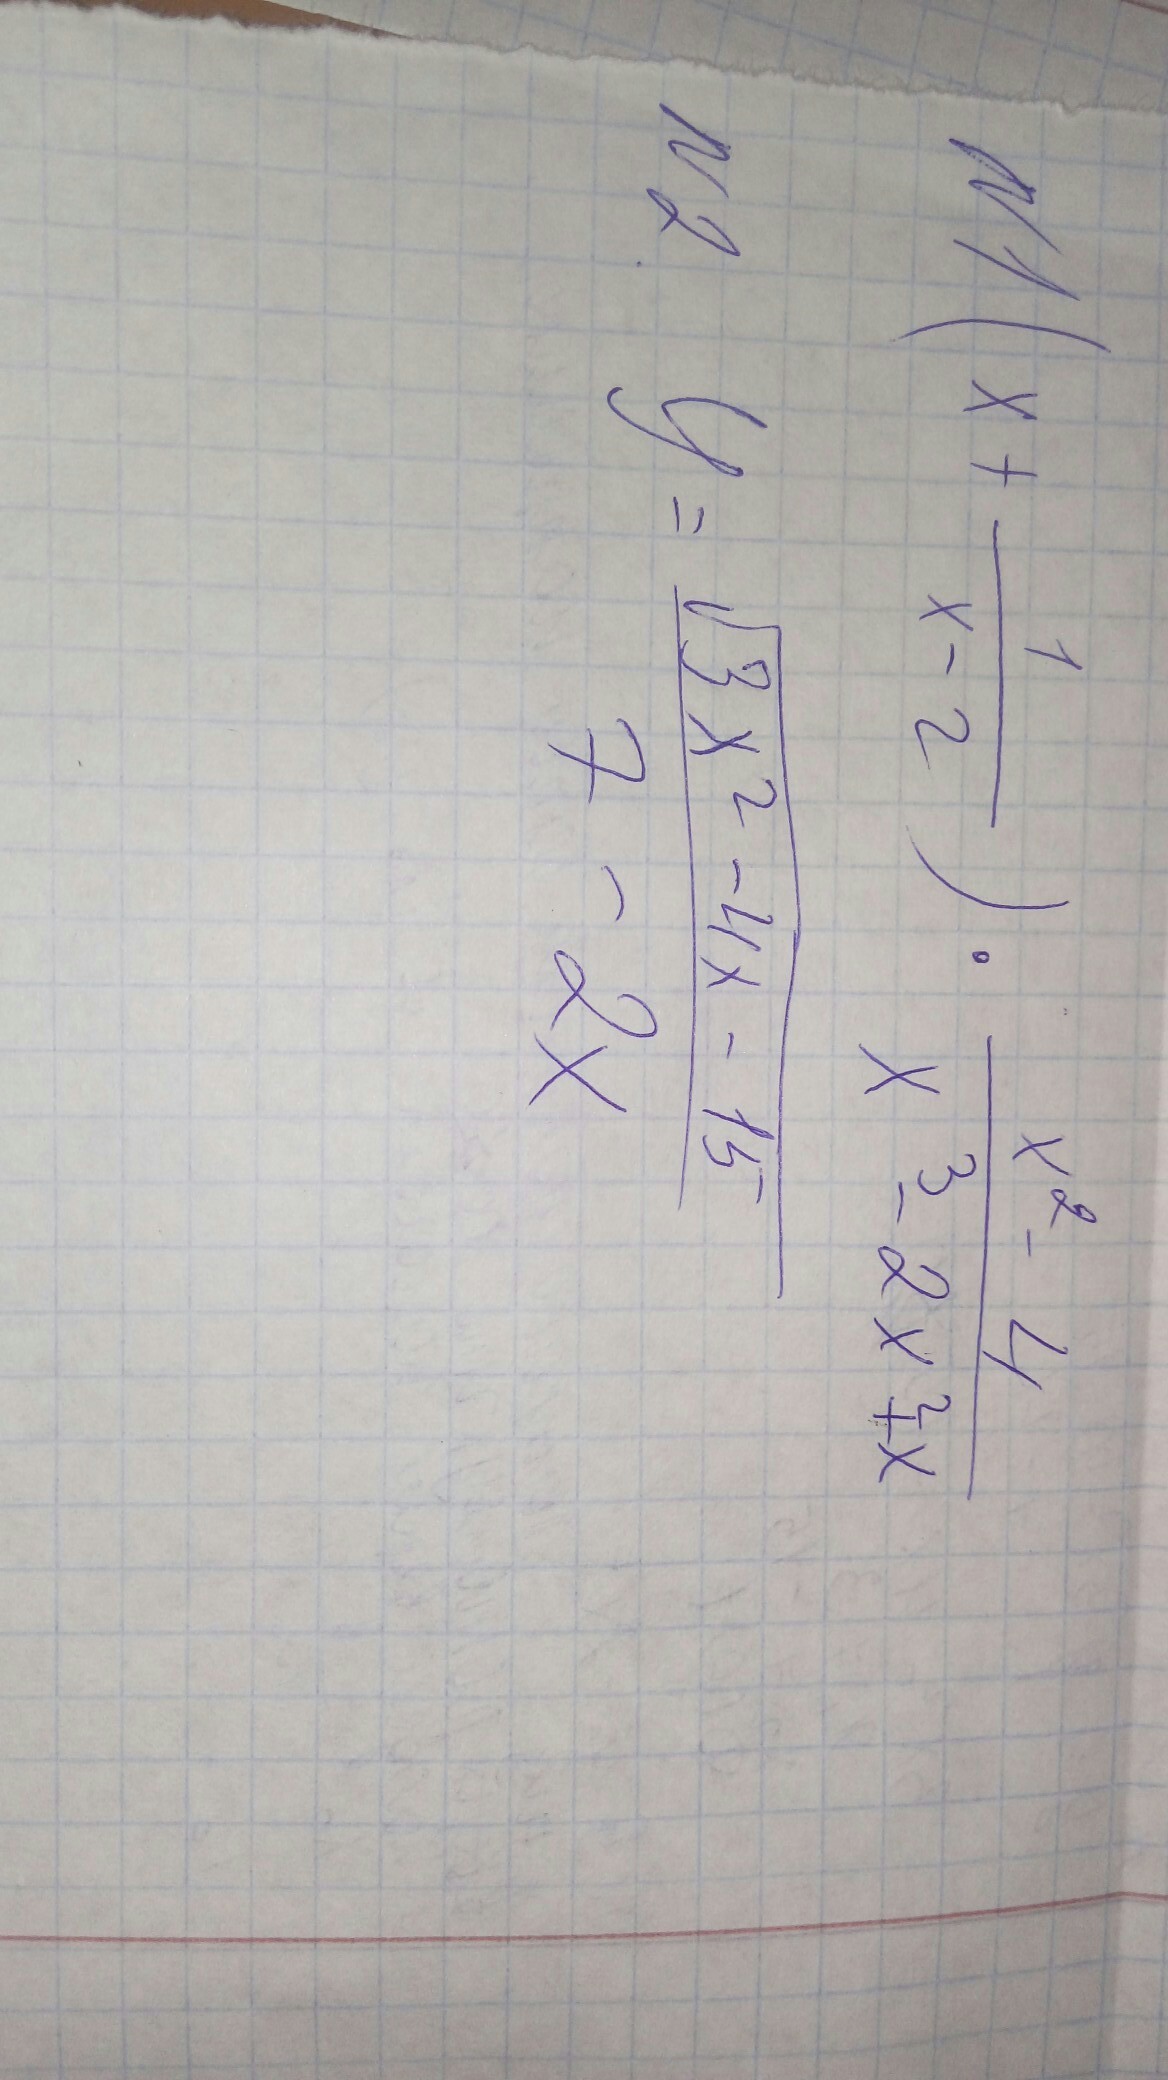 №1 (x + 1/(x - 2)) · (x² - 4)/(x³ - 2x² + x)
№2. y = √(3x² - 4x - 15)/(7 - 2x)